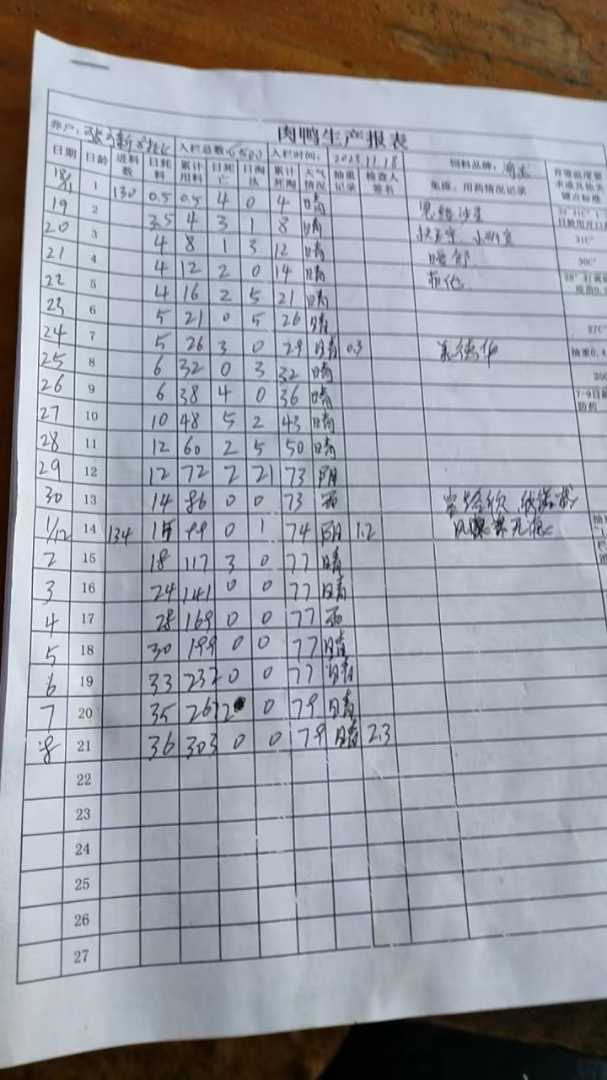 肉鸭生产报表
养户: 入栏总数 入栏时间: 2023.11.18 饲料品牌:
日期 日龄 进料数 日耗料 累计用料 日死亡 日淘汰 累计死淘 天气情况 抽重记录 检查人签名 免疫、用药情况记录
18/11 1 130 0.5 0.5 4 0 4 晴
19 2 3.5 4 3 1 8 晴 恩诺沙星
20 3 4 8 1 3 12 晴 31C°
21 4 4 12 2 0 14 晴 30C°
22 5 4 16 2 5 21 晴
23 6 5 21 0 5 26 晴 27C°
24 7 5 26 3 0 29 晴 0.3
25 8 6 32 0 3 32 晴
26 9 6 38 4 0 36 晴 7-9日龄
27 10 10 48 5 2 43 晴
28 11 12 60 2 5 50 晴
29 12 12 72 2 21 73 阴
30 13 14 86 0 0 73 雨
1/12 14 134 15 99 0 1 74 阴 1.2
2 15 18 117 3 0 77 晴
3 16 24 141 0 0 77 晴
4 17 28 169 0 0 77 雨
5 18 30 199 0 0 77 晴
6 19 33 232 0 0 77 晴
7 20 35 267 2 0 79 晴
8 21 36 303 0 0 79 晴 2.3
22
23
24
25
26
27